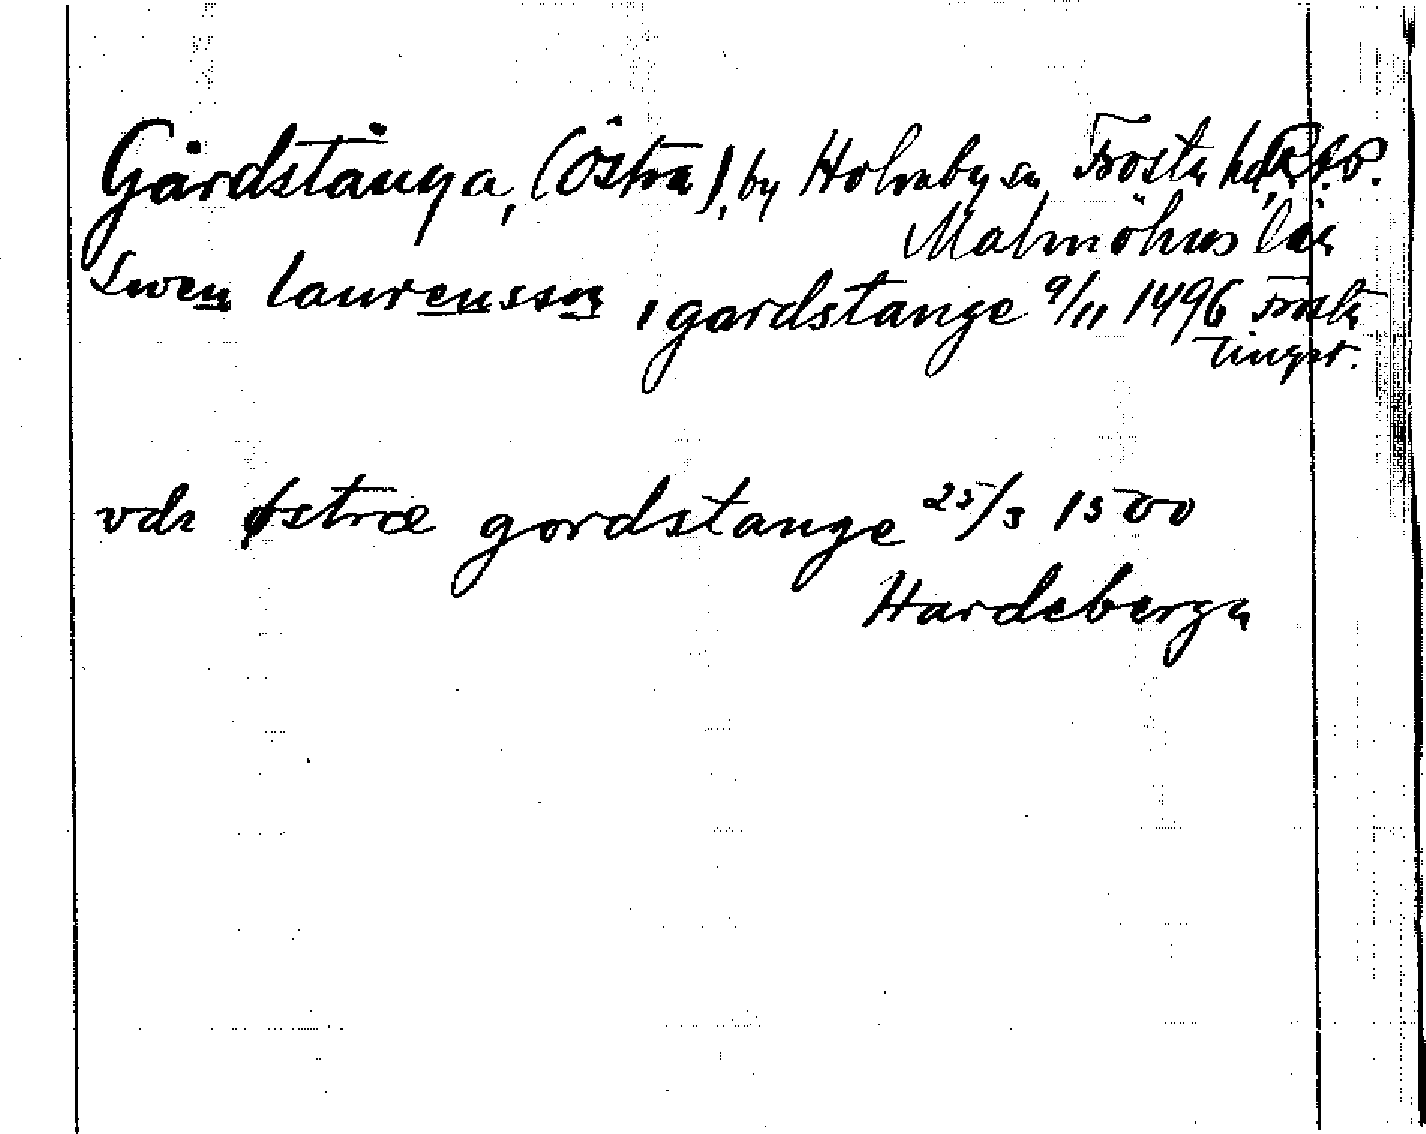 Gårdstånga, (Östra), by Holmby sn Frosta hd,
Malmöhus län
Swen laurensson, gardstange 9/11 1496 Frosta
tingsr.
vdi østræ gordstange 25/3 1500
Hardeberga